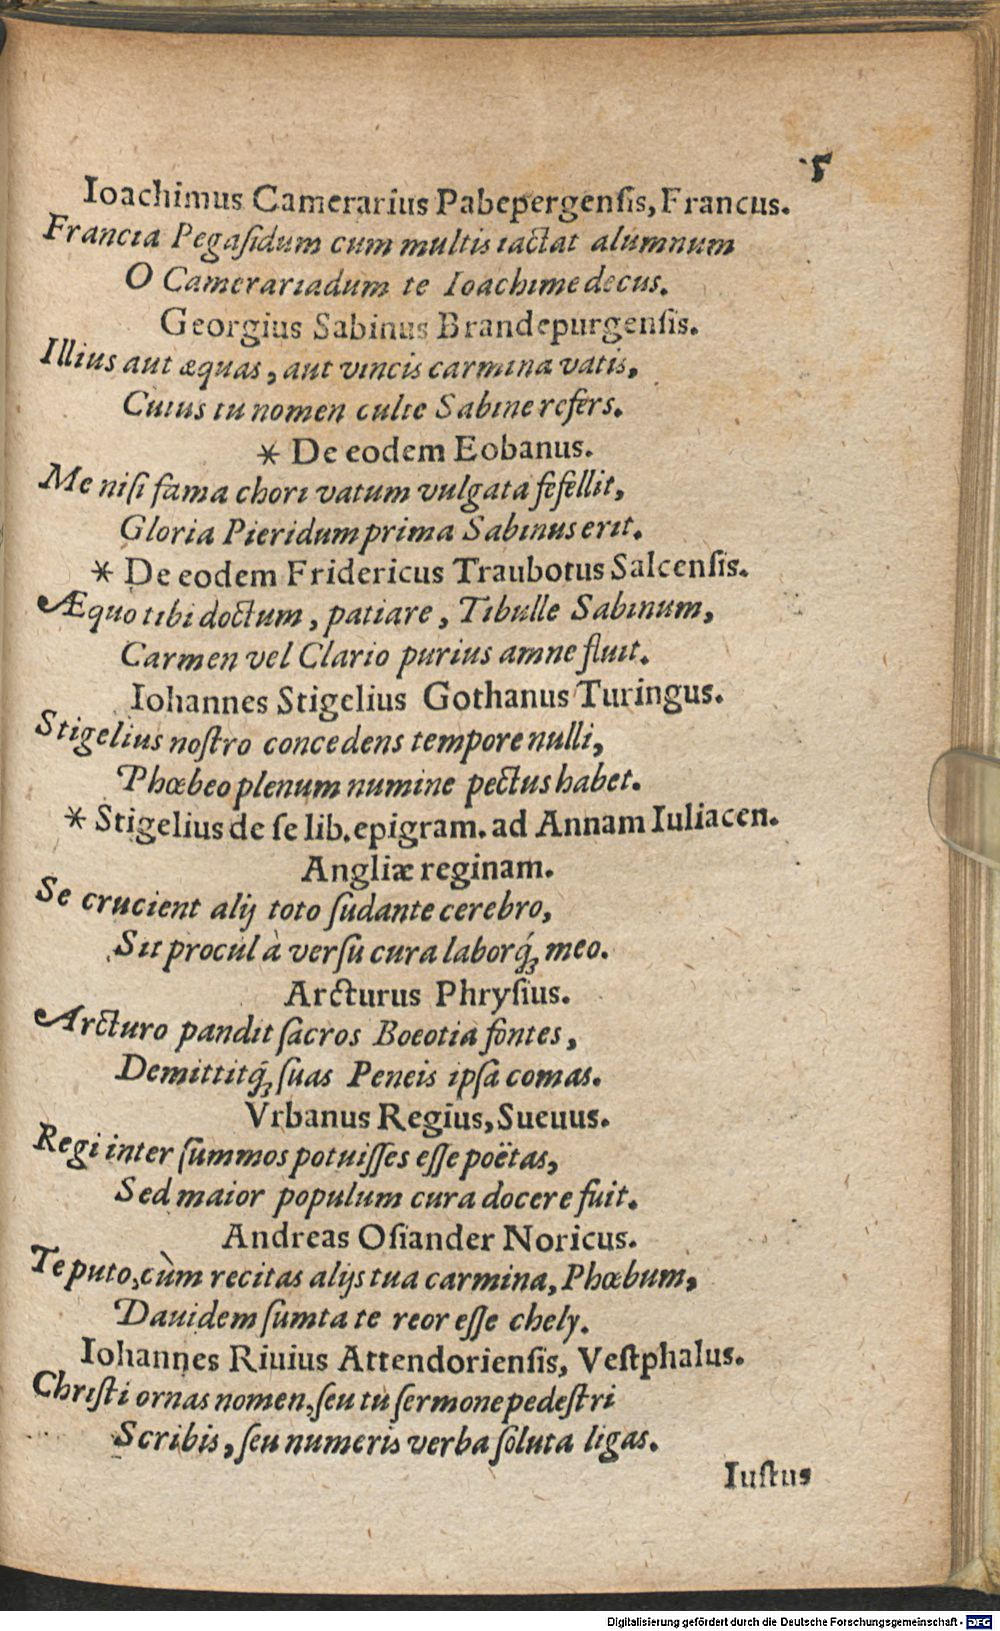 5
Ioachimus Camerarius Pabepergenſis, Francus.
Francia Pegaſidum cum multis iactat alumnum
O Camerariadum te Ioachime decus.
Georgius Sabinus Brandepurgenſis.
Illius aut æquas, aut vincis carmina vatis,
Cuius tu nomen culte Sabine refers.
* De eodem Eobanus.
Me niſi fama chori vatum vulgata fefellit,
Gloria Pieridum prima Sabinus erit.
* De eodem Fridericus Traubotus Salcenſis.
Æquo tibi doctum, patiare, Tibulle Sabinum,
Carmen vel Clario purius amne fluit.
Iohannes Stigelius Gothanus Turingus.
Stigelius noſtro concedens tempore nulli,
Phœbeo plenum numine pectus habet.
* Stigelius de ſe lib. epigram. ad Annam Iuliacen.
Angliæ reginam.
Se crucient alij toto ſudante cerebro,
Sit procul à verſu cura laborq́ꝫ meo.
Arcturus Phryſius.
Arcturo pandit ſacros Boeotia fontes,
Demittitq́ꝫ ſuas Peneis ipſa comas.
Vrbanus Regius, Sueuus.
Regi inter ſummos potuiſſes eſſe poëtas,
Sed maior populum cura docere fuit.
Andreas Oſiander Noricus.
Te puto, cùm recitas alijs tua carmina, Phœbum,
Dauidem ſumta te reor eſſe chely.
Iohannes Riuius Attendorienſis, Veſtphalus.
Chriſti ornas nomen, ſeu tu ſermone pedeſtri
Scribis, ſeu numeris verba ſoluta ligas.
Iuſtus
Digitalisierung gefördert durch die Deutsche Forschungsgemeinschaft - DFG